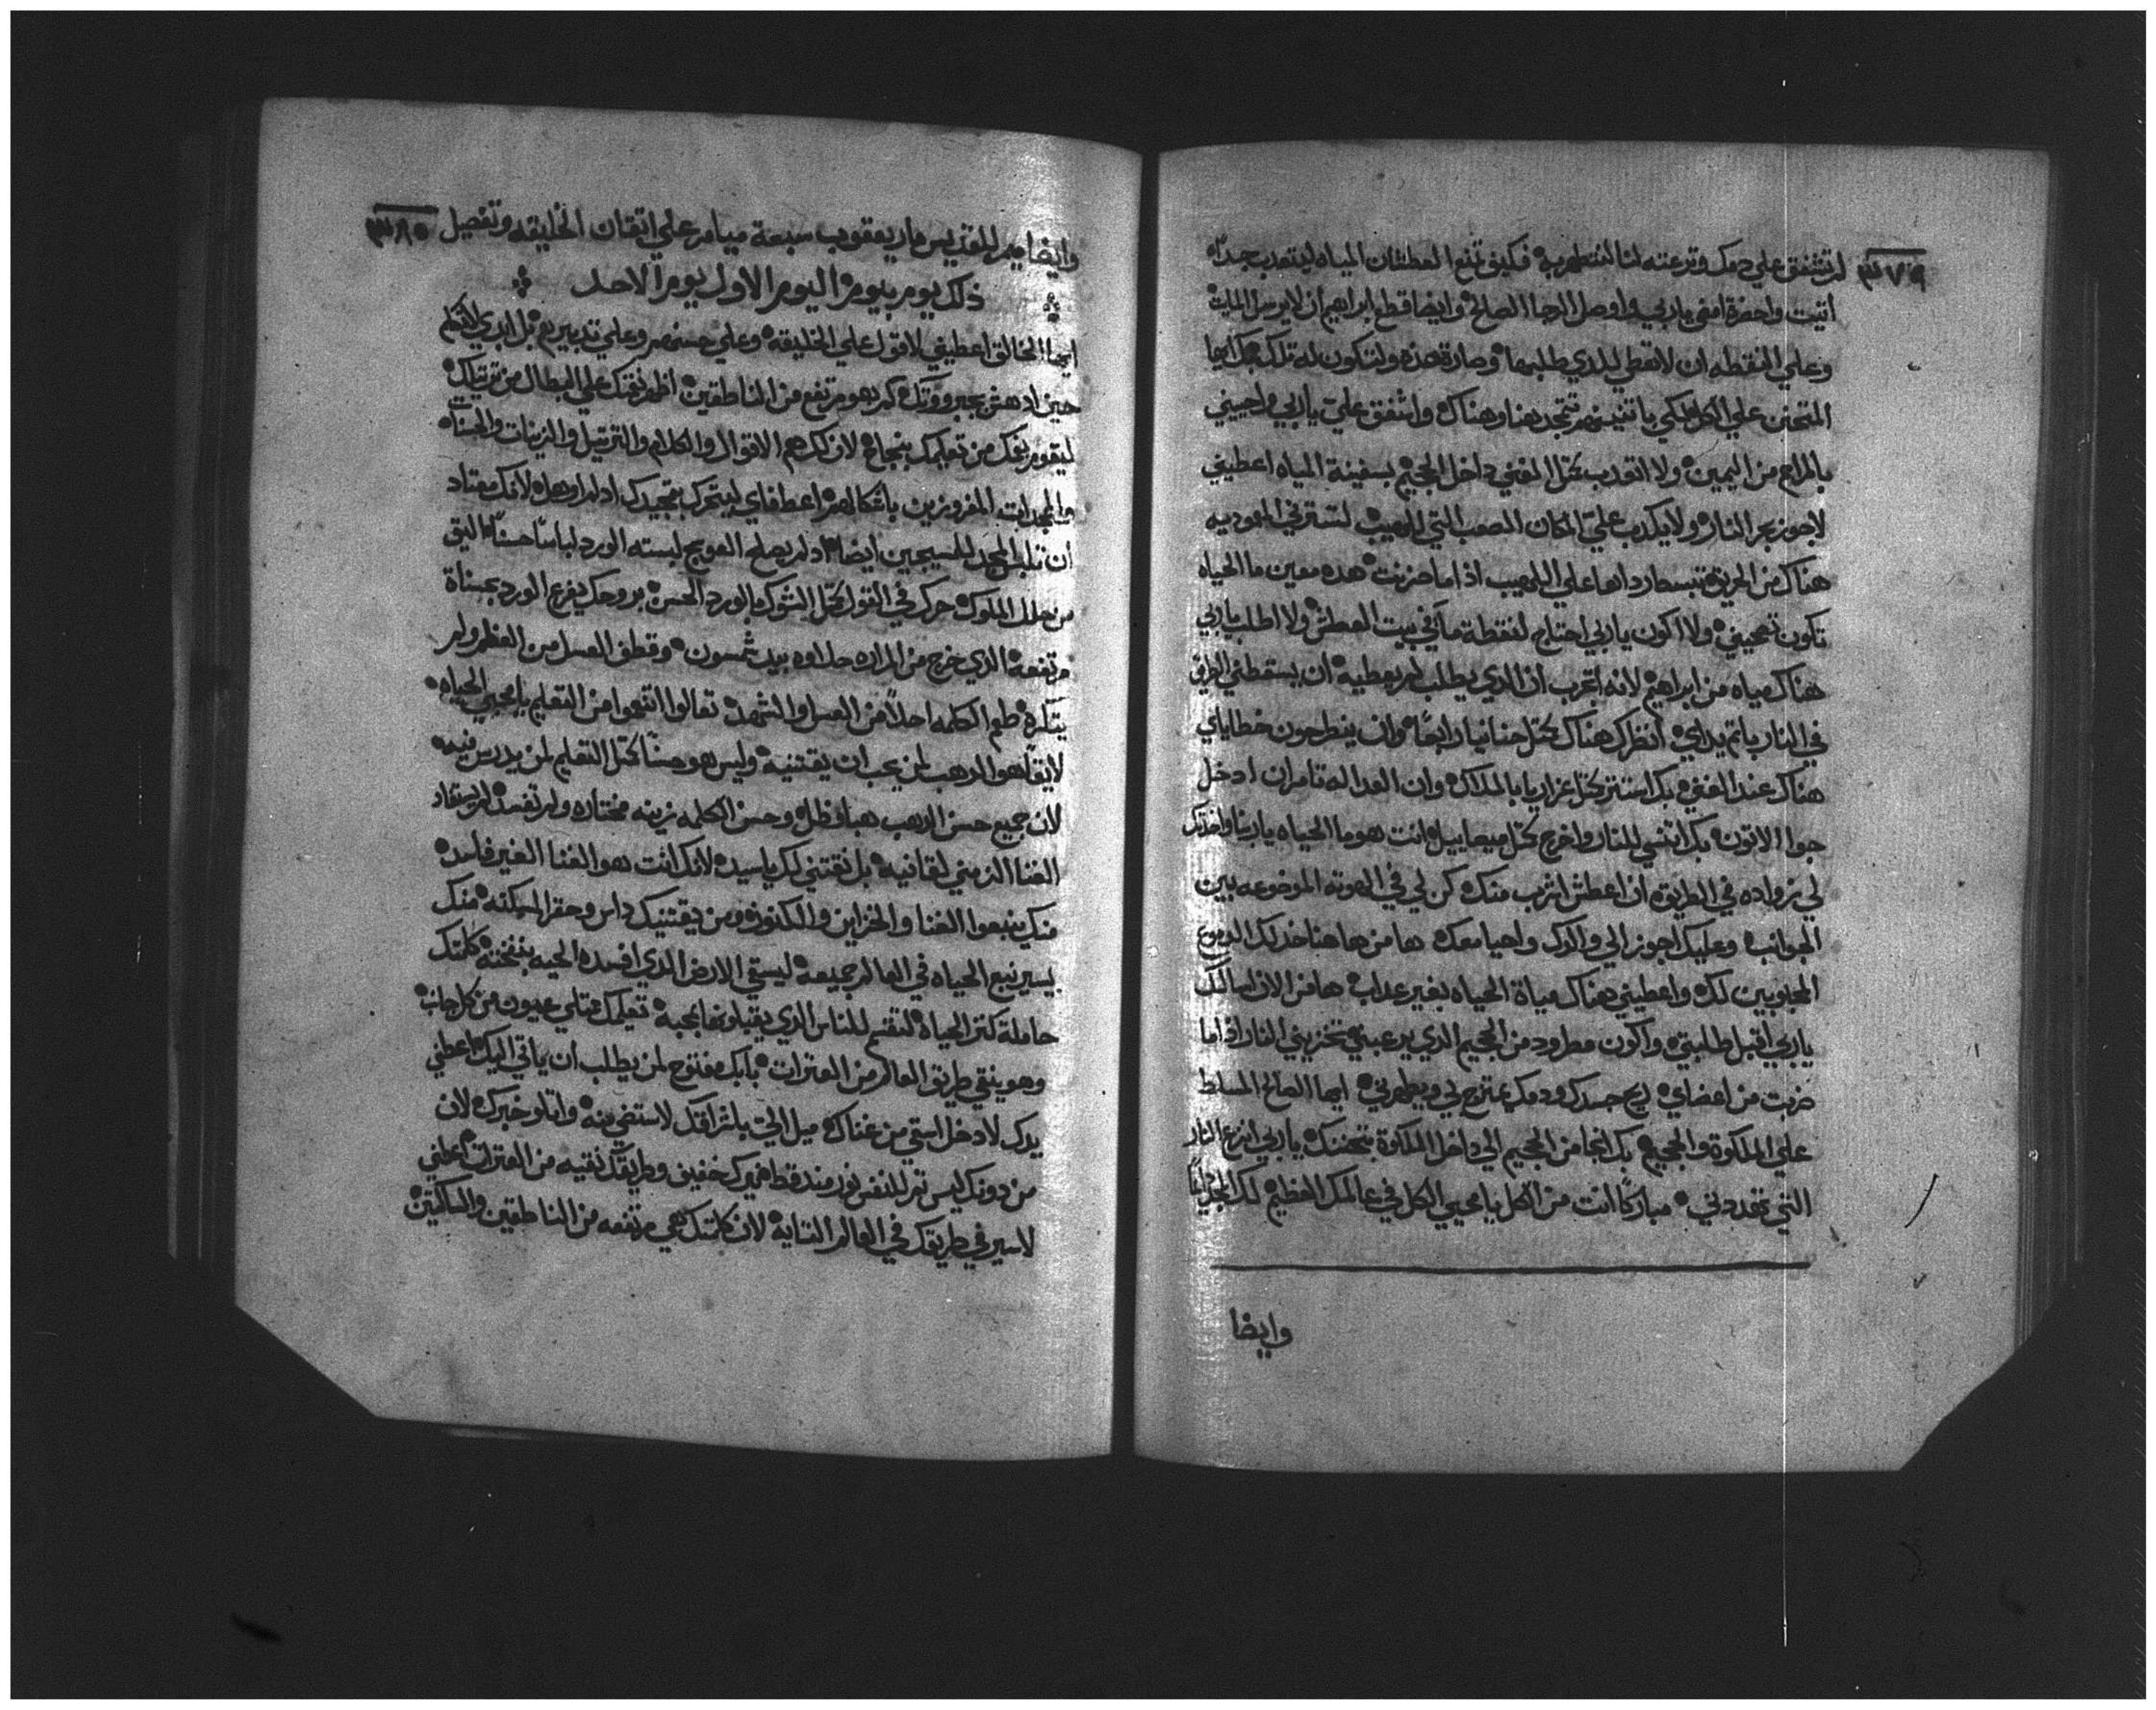 ٣٧٩
لم تشفق علي دمك وترعته لنا لنتطهر به فكيف تمنع العطشان المياه ليتعدب جداً
اتيت واحضرة امني يا ربي اوصل الرجا الصالح وايضا قطع ابراهيم ان لا يرسل المايت
وعلي النقطه ان لا تعطي للذي طلبها وصارة هذه ولتكون له تلك بك ايها
المتحنن علي الكل لكي باتنينهم تتمجد هنا وهناك واشفق علي يا ربي واحييني
من اليمين ولا اتعدب متل الغني داخل الجحيم بسفينة المياه اعطيني
لاجوز بحر النار ولا يكدب علي المكان الصعب التي اللهيب لتسترني المعموديه
هناك من الحريق تبسط رداها علي اللهيب اذ اما حزنت هده معين ما الحياه
تكون تحييني ولا اكون يا ربي احتاج لنقطة ما في بيت العطش ولا اطلب يا ربي
هناك مياه من ابراهيم لانه اتجرب ان الذي يطلب لم يعطيه ان يسقطني الطرف
في النار باتم يداي انظرك هناك متل حنانيا رابعاً وان يطرحون خطاياي
هناك عند الغني بك استتر متل عزاريا بالملاك وان العداله تامر ان ادخل
جوا الاتون بك انتشي للنار واخرج متل ميصاييل انت هو ما الحياه يا ربنا واخدتك
لي زواده في الطريق ان اعطش اشرب منك كن لي في الهوته الموضوعه بين
الجوانب وعليك اجوز الي والدك واحيا معك ها من هاهنا خد لك الدموع
المحبوبين لك واعطيني هناك مياة الحياه بغير عداب ها من الان اسالك
يا ربي اقبل طلبتي واكون مطرود من الجحيم الذي يرعبني تخزيني النار اذ اما
ضربت من اعضاي ريح جسدك ودمك يمتزج لي ويطهرني ايها الصالح المسلط
علي الملكوة والجحيم بك انجا من الجحيم الي داخل الملكوة بتحننك يا ربي انزع النار
التي تهددني مباركاً انت من الكل يا محيي الكل في عالمك العظيم لك المجد
وايضا
٣٨٠
وايضا ميمر للقديس مار يعقوب سبعة ميامر علي اتقان الخليقه وتفصيل
ذلك يوم بيوم اليوم الاول يوم الاحد
ايها الخالق اعطيني لاقول علي الخليقه وعلي حسنهم وعلي تدبيرهم بل ابدي لاتكلم
حين ادهش بجبروتك كم هو مرتفع من الناطقين اظهر نفتك علي البطال من ترتيلك
ليقوم يفك من تعليمك بنجاح لان لك هم الاقوال والكلام والترتيل والزينات والحسنات
والمجدات المفروزين باشكالهم اعطفاي ليتحرك بتمجيدك اد لم اهداه لانك معتاد
ان تلبس المجد للسمجين ايضا اد لم يصلح العوسج لبسته الورد لباساً حسناً اليق
من حلل الملوك حرك في القول متل الشوك بالورد الحسن بروحك يفرع الورد بحسناة
مرتفعه الذي خرج من المراره حلاوه بيد شمسون وقطف العسل من العظم ولم
يتكره طعم الكلمه احلا من العسل والشهد تعالوا اتنعموا من التعليم يا محبي الحياه
لا يقا هو الدهب لمن يحب ان يقتنيه وليس هو حسناً متل التعليم لمن يدرس فيه
لان جميع حسن الدهب هبا وظل وحسن الكلمه زينه مختاره ولم تفسد لم يستفاد
الغنا الزمني لقانيه بل نقتني لك يا سيد لانك انت هو الغنا الغير فاسد
منك ينبعوا الغنا والخزاين والكنوز ومن يقتنيك داس وحقر المسكنه منك
يسير نبع الحياه في العالم جميعه ليسقي الارض الذي افسده الحيه بنفخته كلمتك
حاملة كنز الحياة لتقسم للناس الذي يقبلونها بمحبه تعليمك ممتلي عيون من كل جانب
وهو ينقي طريق العالم من العترات بابك مفتوح لمن يطلب ان ياتي اليك اعطني
يدك لادخل استي من غناك ميل الي باشراقك لاستضي منه واتلو خبرك لان
من دونك ليس تم للنفس نور مند قط نيرك خفيف وطريقك نقيه من العترات اعطني
لاسير في طريقك في العالم التايه لان كلمتك هي مرتفعه من الناطقين والساكتين